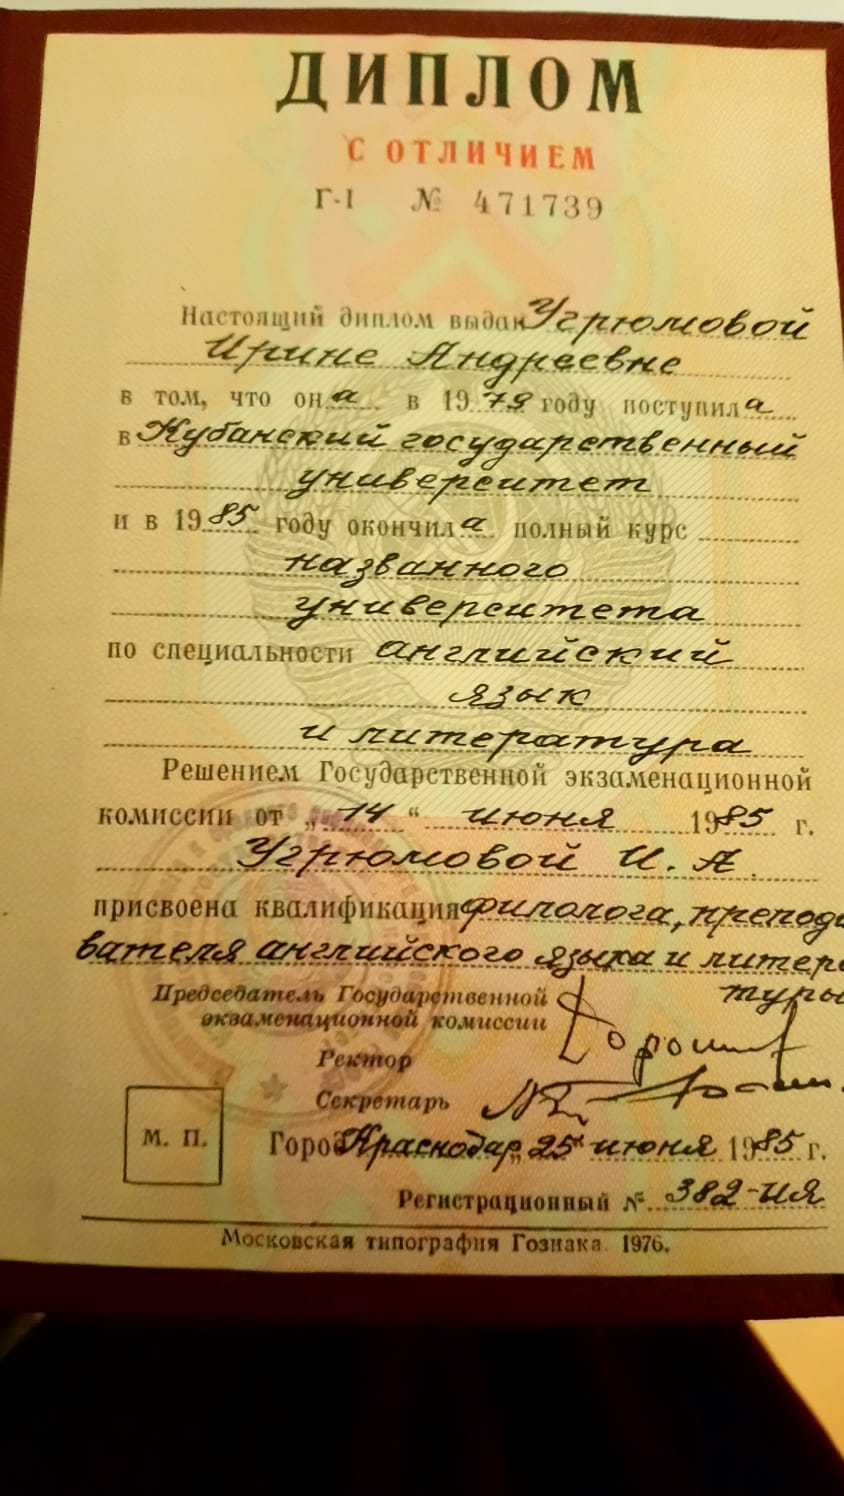 ДИПЛОМ
С ОТЛИЧИЕМ
Г-I № 471739
Настоящий диплом выдан Угрюмовой
Ирине Андреевне
в том, что она в 1979 году поступила
в Кубанский государственный
университет
и в 1985 году окончила полный курс
названного
университета
по специальности английский
язык
и литература
Решением Государственной экзаменационной
комиссии от „14“ июня 1985 г.
Угрюмовой И. А.
присвоена квалификация филолога, препода
вателя английского языка и литера
туры
Председатель Государственной
экзаменационной комиссии
Ректор
Секретарь
М. П.
Город Краснодар „25“ июня 1985 г.
Регистрационный № 382-ИЯ
Московская типография Гознака. 1976.